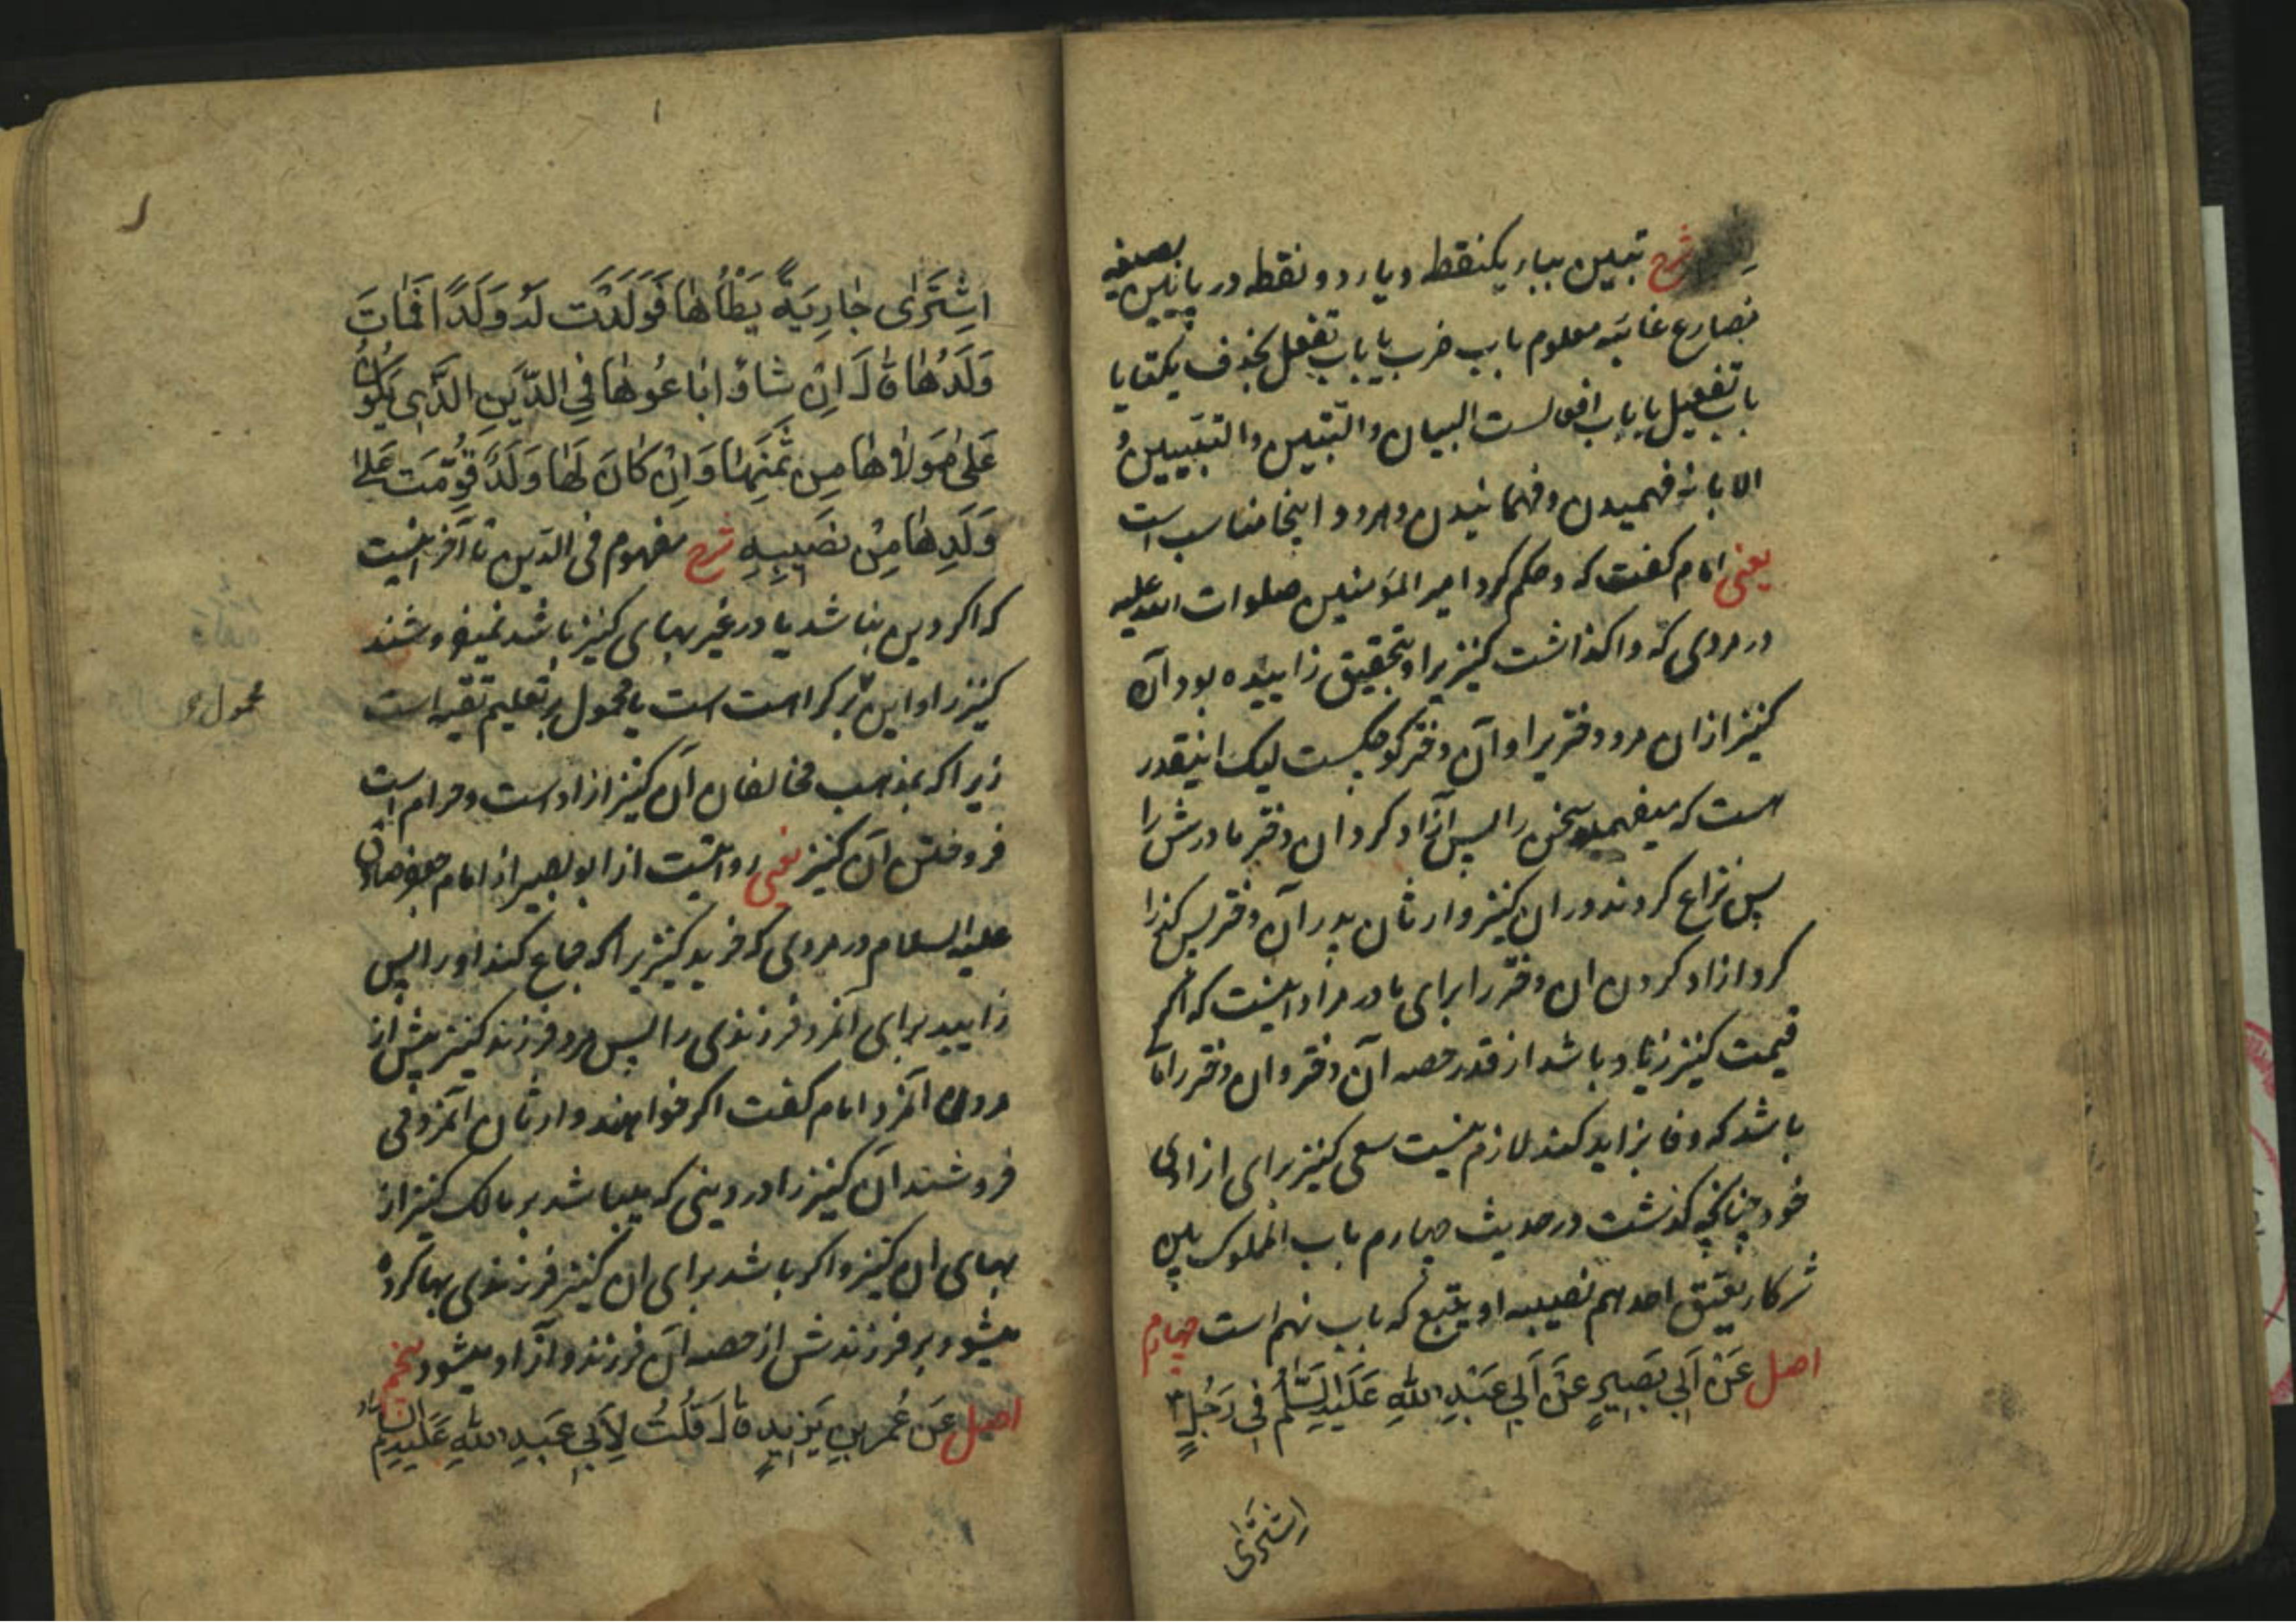 شرح تبین ببار یکنقطه ویار دو نقطه در پائین بصیغه
مضارع غائبه معلوم باب ضرب یا باب تفعل بحذف یکتا یا
باب تفعیل یا باب افعالست البیان والتبین والتبیین و
الابانه فهمیدن وفهمانیدن وهردو اینجا مناسب است
یعنی امام کفت که وحکم کرد امیر المؤمنین صلوات الله علیه
در مردی که واکذاشت کنیزیرا وبتحقیق زاییده بود آن
کنیز ازان مرد دختریرا وآن دختر کوچکست لیک اینقدر
هست که میفهمد سخن را پس آزاد کرد ان دختر مادرش را
پس نزاع کردند در ان کنیز وارثان پدر آن دختر پس کذرا
کرد ازاد کردن ان دختر را برای مادر مراد اینست که اکر
قیمت کنیز زیاد باشد از قدر حصه آن دختر وان دختر را آنقدر
باشد که وفا بزاید کند لازم نیست سعی کنیز برای ازادی
خود چنانچه کذشت در حدیث چهارم باب المملوک بین
شرکاء یعتق احدهم نصیبه او یبیع که باب نهم است چهارم
اصل عَنْ اَبِی بَصِیرٍ عَنْ اَبِی عَبْدِ اللهِ عَلَیْهِ السَّلٰمُ فِی رَجُلٍ
اِشْتَرٰی
اشْتَرٰی جٰارِیَةً یَطَأُهٰا فَوَلَدَتْ لَهُ وَلَدًا فَمٰاتَ
وَلَدُهٰا قٰالَ اِنْ شٰاؤُا بٰاعُوهٰا فِی الدَّیْنِ الَّذِی یَکُونُ
عَلیٰ مَوْلاٰهٰا مِنْ ثَمَنِهٰا وَاِنْ کٰانَ لَهٰا وَلَدٌ قُوِّمَتْ عَلیٰ
وَلَدِهٰا مِنْ نَصِیبِهِ شرح مفهوم فی الدین تا آخر اینست
که اکر دین نباشد یا در غیر بهای کنیز باشد نمیفروشند
کنیز را واین برکراهت است یا محمول بر تعلیم تقیه است
محمول
زیرا که بمذهب مخالفان آن کنیز ازاد است وحرام است
فروختن آن کنیز یعنی روایتست از ابو بصیر از امام جعفر صادق
علیه السلام در مردی که خرید کنیزیرا که جماع کند اورا پس
زایید برای آنمرد فرزندی را پس مرد فرزند کنیز پیش از
مردن آنمرد امام کفت اکر خواهند وارثان آنمرد می
فروشند آن کنیز را در دینی که میباشد بر مالک کنیز از
بهای ان کنیز واکر باشد برای ان کنیز فرزندی بها کرده
میشود بر فرزندش از حصه آن فرزند وآزاد میشود پنجم
اصل عَن عُمَر بنِ یَزِیدٍ قٰالَ قُلْتُ لِاَبِی عَبدِ اللهِ عَلَیهِ السَّلٰم